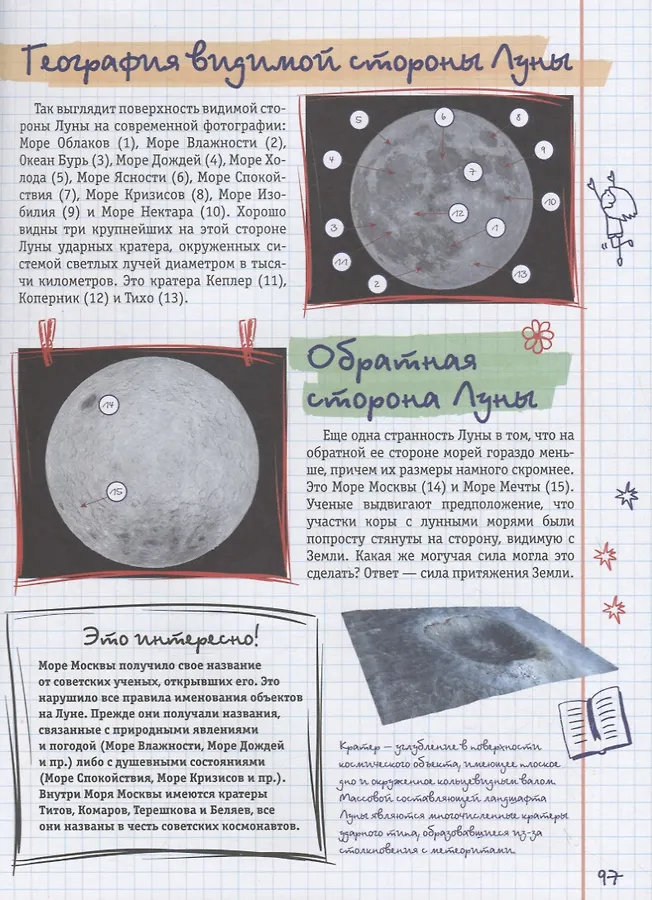 География видимой стороны Луны
Так выглядит поверхность видимой сто-
роны Луны на современной фотографии:
Море Облаков (1), Море Влажности (2),
Океан Бурь (3), Море Дождей (4), Море Хо-
лода (5), Море Ясности (6), Море Спокой-
ствия (7), Море Кризисов (8), Море Изо-
билия (9) и Море Нектара (10). Хорошо
видны три крупнейших на этой стороне
Луны ударных кратера, окруженных си-
стемой светлых лучей диаметром в тыся-
чи километров. Это кратера Кеплер (11),
Коперник (12) и Тихо (13).
5
6
8
4
9
7
10
12
3
1
11
2
13
14
15
Обратная
сторона Луны
Еще одна странность Луны в том, что на
обратной ее стороне морей гораздо мень-
ше, причем их размеры намного скромнее.
Это Море Москвы (14) и Море Мечты (15).
Ученые выдвигают предположение, что
участки коры с лунными морями были
попросту стянуты на сторону, видимую с
Земли. Какая же могучая сила могла это
сделать? Ответ — сила притяжения Земли.
Это интересно!
Море Москвы получило свое название
от советских ученых, открывших его. Это
нарушило все правила именования объектов
на Луне. Прежде они получали названия,
связанные с природными явлениями
и погодой (Море Влажности, Море Дождей
и пр.) либо с душевными состояниями
(Море Спокойствия, Море Кризисов и пр.).
Внутри Моря Москвы имеются кратеры
Титов, Комаров, Терешкова и Беляев, все
они названы в честь советских космонавтов.
Кратер — углубление в поверхности
космического объекта, имеющее плоское
дно и окруженное кольцевидным валом.
Массовой составляющей ландшафта
Луны являются многочисленные кратеры
ударного типа, образовавшиеся из-за
столкновения с метеоритами.
97